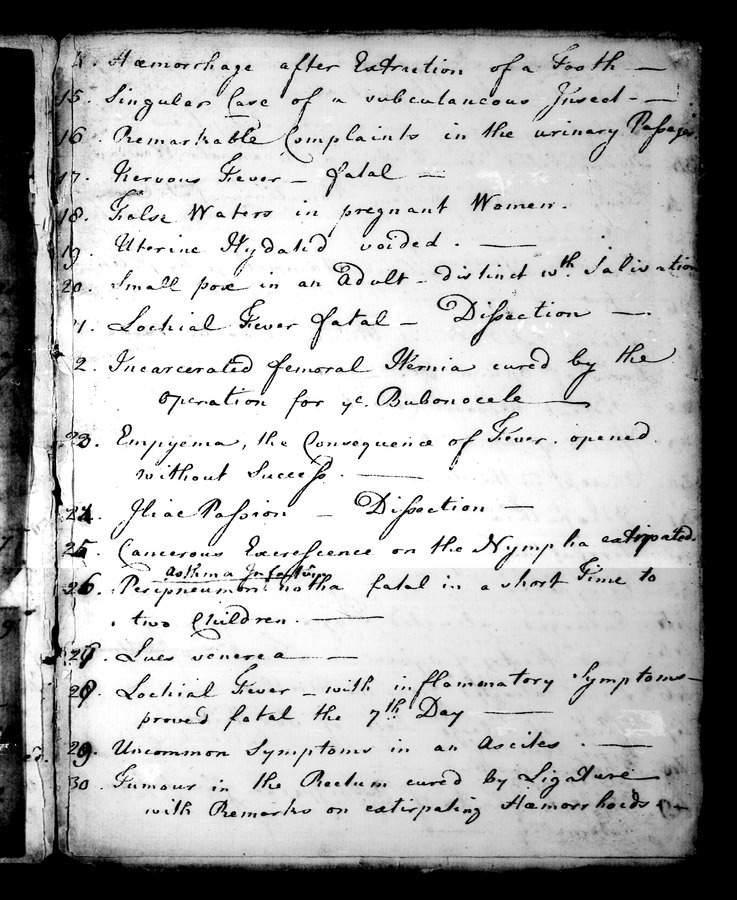 4. Hæmorrhage after Extraction of a Tooth —
15. Singular Case of a subcutaneous Insect - —
16. Remarkable Complaints in the urinary Passages
17. Nervous Fever — fatal —
18. False Waters in pregnant Women.
19. Uterine Hydatid voided. —
20. Small pox in an Adult - distinct wth. Salivation
1. Lochial Fever fatal — Dissection —.
2. Incarcerated femoral Hernia cured by the
operation for ye. Bubonocele —
23. Empyema, the Consequence of Fever. opened
without Success. —
24. Iliac Passion — Dissection —
25. Cancerous Excrescence on the Nympha extirpated.
Asthma Infantum
26. Peripneumon: notha fatal in a short Time to
two Children. —
27. Lues venerea — —
28. Lochial Fever — with inflammatory Symptoms —
proved fatal the 7th Day —
29. Uncommon Symptoms in an Ascites. —
30. Tumour in the Rectum cured by Ligature
with Remarks on extirpating Hæmorrhoids